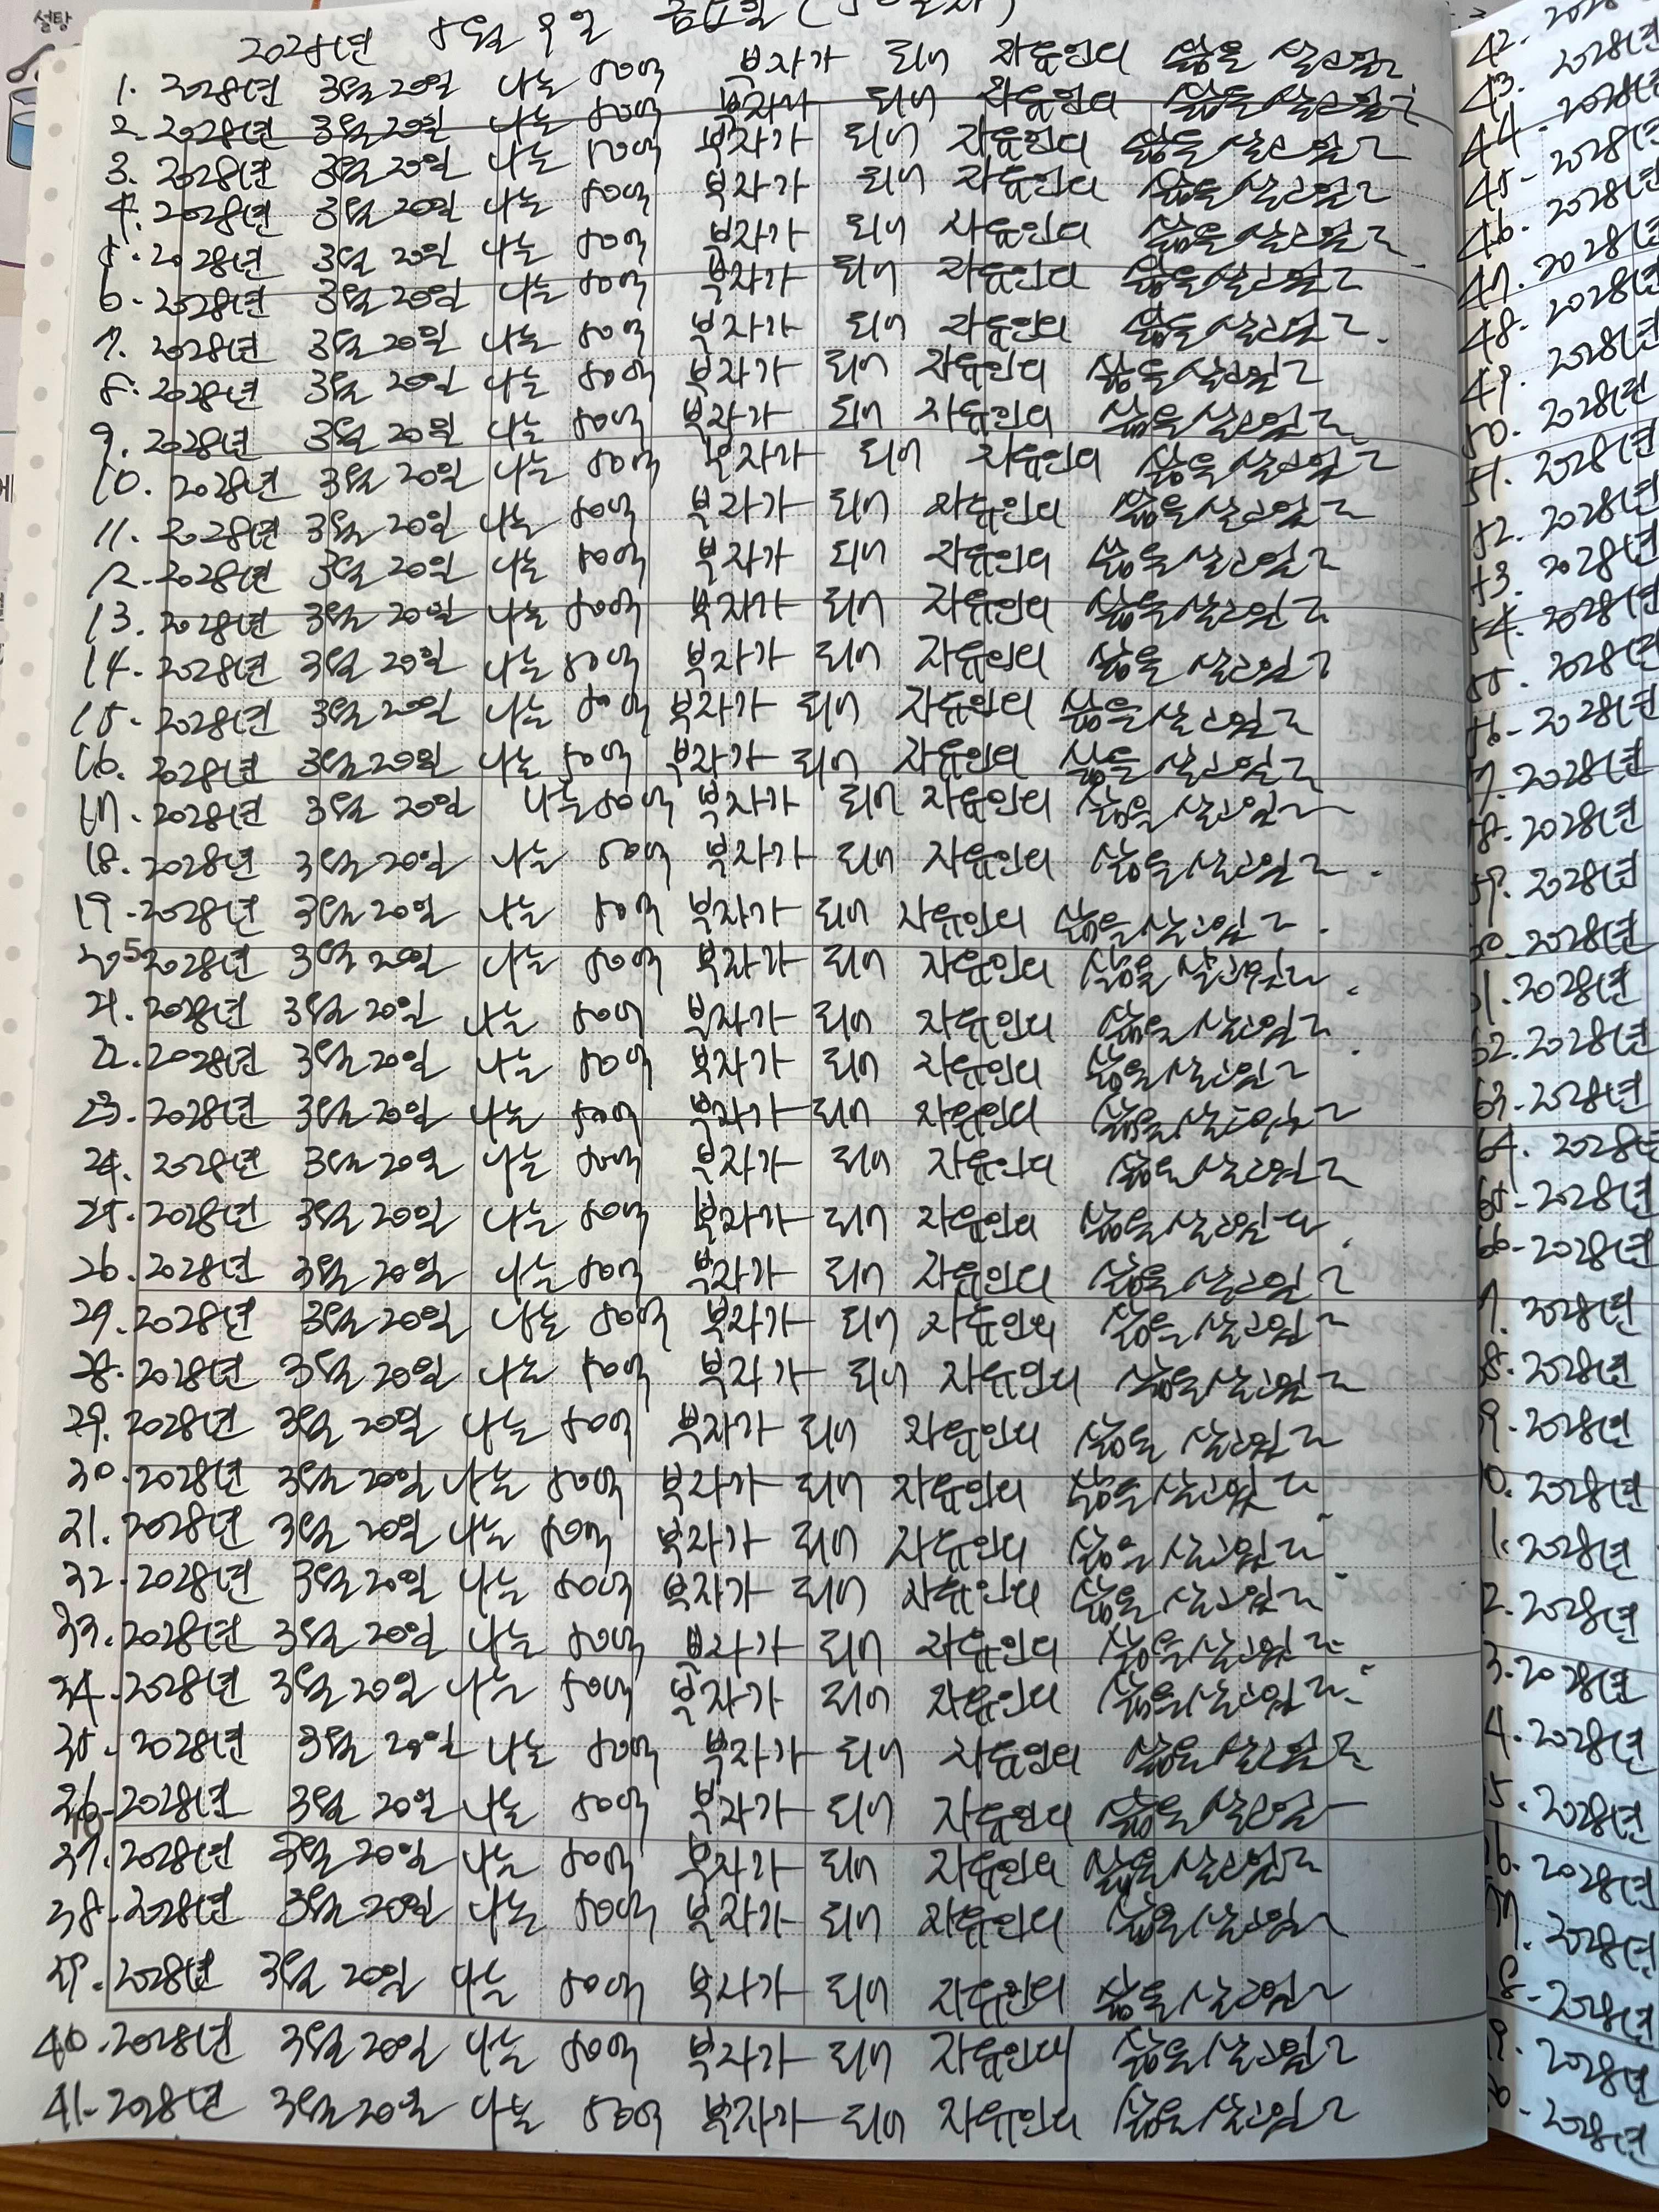 설탕
2025년 5월 9일 금요일
1. 2028년 3월 20일 나는 50억 부자가 되어 자유인의 삶을 살고있다
2. 2028년 3월 20일 나는 50억 부자가 되어 자유인의 삶을 살고있다
3. 2028년 3월 20일 나는 50억 부자가 되어 자유인의 삶을 살고있다
4. 2028년 3월 20일 나는 50억 부자가 되어 자유인의 삶을 살고있다
5. 2028년 3월 20일 나는 50억 부자가 되어 자유인의 삶을 살고있다.
6. 2028년 3월 20일 나는 50억 부자가 되어 자유인의 삶을 살고있다
7. 2028년 3월 20일 나는 50억 부자가 되어 자유인의 삶을 살고있다.
8. 2028년 3월 20일 나는 50억 부자가 되어 자유인의 삶을 살고있다
9. 2028년 3월 20일 나는 50억 부자가 되어 자유인의 삶을 살고있다.
10. 2028년 3월 20일 나는 50억 부자가 되어 자유인의 삶을 살고있다
11. 2028년 3월 20일 나는 50억 부자가 되어 자유인의 삶을 살고있다
12. 2028년 3월 20일 나는 50억 부자가 되어 자유인의 삶을 살고있다
13. 2028년 3월 20일 나는 50억 부자가 되어 자유인의 삶을 살고있다
14. 2028년 3월 20일 나는 50억 부자가 되어 자유인의 삶을 살고있다
15. 2028년 3월 20일 나는 50억 부자가 되어 자유인의 삶을 살고있다
16. 2028년 3월 20일 나는 50억 부자가 되어 자유인의 삶을 살고있다
17. 2028년 3월 20일 나는 50억 부자가 되어 자유인의 삶을 살고있다
18. 2028년 3월 20일 나는 50억 부자가 되어 자유인의 삶을 살고있다.
19. 2028년 3월 20일 나는 50억 부자가 되어 자유인의 삶을 살고있다.
20. 2028년 3월 20일 나는 50억 부자가 되어 자유인의 삶을 살고있다.
21. 2028년 3월 20일 나는 50억 부자가 되어 자유인의 삶을 살고있다.
22. 2028년 3월 20일 나는 50억 부자가 되어 자유인의 삶을 살고있다
23. 2028년 3월 20일 나는 50억 부자가 되어 자유인의 삶을 살고있다
24. 2028년 3월 20일 나는 50억 부자가 되어 자유인의 삶을 살고있다
25. 2028년 3월 20일 나는 50억 부자가 되어 자유인의 삶을 살고있다.
26. 2028년 3월 20일 나는 50억 부자가 되어 자유인의 삶을 살고있다
27. 2028년 3월 20일 나는 50억 부자가 되어 자유인의 삶을 살고있다
28. 2028년 3월 20일 나는 50억 부자가 되어 자유인의 삶을 살고있다
29. 2028년 3월 20일 나는 50억 부자가 되어 자유인의 삶을 살고있다
30. 2028년 3월 20일 나는 50억 부자가 되어 자유인의 삶을 살고있다
31. 2028년 3월 20일 나는 50억 부자가 되어 자유인의 삶을 살고있다
32. 2028년 3월 20일 나는 50억 부자가 되어 자유인의 삶을 살고있다
33. 2028년 3월 20일 나는 50억 부자가 되어 자유인의 삶을 살고있다
34. 2028년 3월 20일 나는 50억 부자가 되어 자유인의 삶을 살고있다
35. 2028년 3월 20일 나는 50억 부자가 되어 자유인의 삶을 살고있다
36. 2028년 3월 20일 나는 50억 부자가 되어 자유인의 삶을 살고있다
37. 2028년 3월 20일 나는 50억 부자가 되어 자유인의 삶을 살고있다
38. 2028년 3월 20일 나는 50억 부자가 되어 자유인의 삶을 살고있다
39. 2028년 3월 20일 나는 50억 부자가 되어 자유인의 삶을 살고있다
40. 2028년 3월 20일 나는 50억 부자가 되어 자유인의 삶을 살고있다
41. 2028년 3월 20일 나는 50억 부자가 되어 자유인의 삶을 살고있다
42. 2028
43. 2028년
44. 2028년
45. 2028년
46. 2028년
47. 2028년
48. 2028년
49. 2028년
50. 2028년
51. 2028년
52. 2028년
53. 2028년
54. 2028년
55. 2028년
56. 2028년
7. 2028년
58. 2028년
59. 2028년
60. 2028년
1. 2028년
62. 2028년
63. 2028년
64. 2028년
65. 2028년
66. 2028년
7. 2028년
8. 2028년
9. 2028년
0. 2028년
1. 2028년
2. 2028년
3. 2028년
4. 2028년
5. 2028년
6. 2028년
7. 2028년
8. 2028년
9. 2028년
0. 2028년